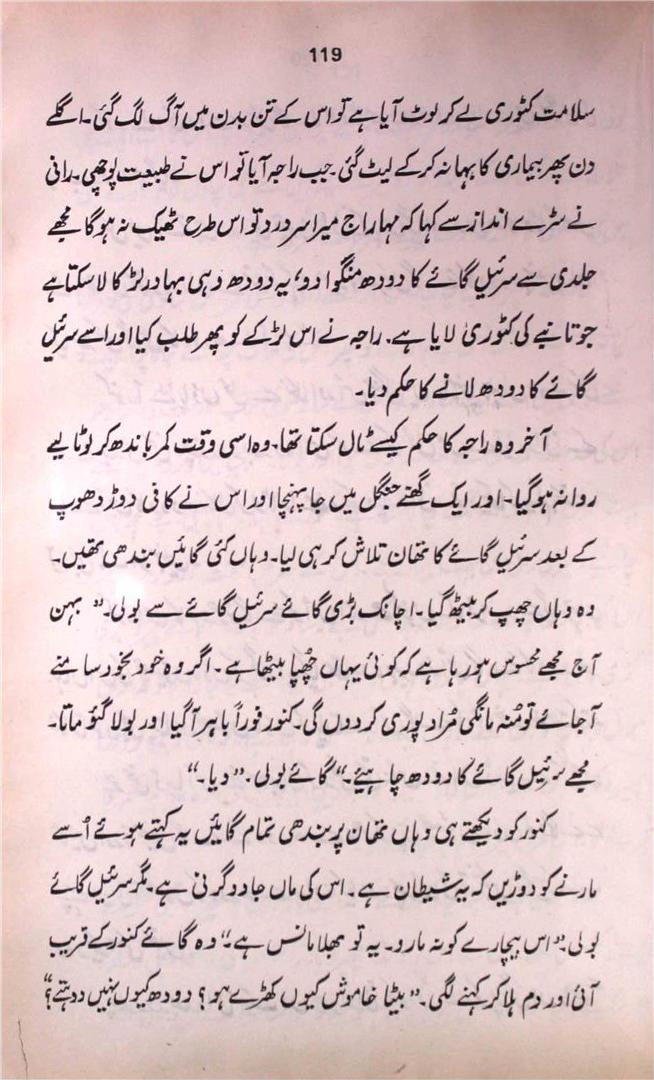 119
سلامت کٹوری لے کر لوٹ آیا ہے تو اس کے تن بدن میں آگ لگ گئی۔ اگلے
دن پھر بیماری کا بہانہ کرکے لیٹ گئی۔ جب راجہ آیا تو اس نے طبیعت پوچھی۔ رانی
نے سڑے انداز سے کہا کہ مہاراج میرا سر درد تو اس طرح ٹھیک نہ ہوگا مجھے
جلدی سے سرئیل گائے کا دودھ منگوا دو، یہ دودھ وہی بہادر لڑکا لا سکتا ہے
جو تانبے کی کٹوری لایا ہے۔ راجہ نے اس لڑکے کو پھر طلب کیا اور اسے سرئیل
گائے کا دودھ لانے کا حکم دیا۔
آخر وہ راجہ کا حکم کیسے ٹال سکتا تھا۔ وہ اسی وقت کمر باندھ کر لوٹا لیے
روانہ ہوگیا۔ اور ایک گھنے جنگل میں جا پہنچا اور اس نے کافی دوڑ دھوپ
کے بعد سرئیل گائے کا تھان تلاش کر ہی لیا۔ وہاں کئی گائیں بندھی تھیں۔
وہ وہاں چھپ کر بیٹھ گیا۔ اچانک بڑی گائے سرئیل گائے سے بولی۔ ”بہن
آج مجھے محسوس ہو رہا ہے کہ کوئی یہاں چُھپا بیٹھا ہے۔ اگر وہ خود بخود سامنے
آجائے تو مُنہ مانگی مُراد پوری کر دوں گی۔ کنور فوراً باہر آگیا اور بولا گئو ماتا۔
مجھے سرئیل گائے کا دودھ چاہیئے۔“ گائے بولی۔ ”دیا۔“
کنور کو دیکھتے ہی وہاں تھان پر بندھی تمام گائیں یہ کہتے ہوئے اُسے
مارنے کو دوڑیں کہ یہ شیطان ہے۔ اس کی ماں جادوگرنی ہے۔ مگر سرئیل گائے
بولی۔ ”اس بیچارے کو نہ مارو۔ یہ تو بھلا مانس ہے۔“ وہ گائے کنور کے قریب
آئی اور دم ہلا کر کہنے لگی۔ ”بیٹا خاموش کیوں کھڑے ہو؟ دودھ کیوں نہیں دوہتے؟“